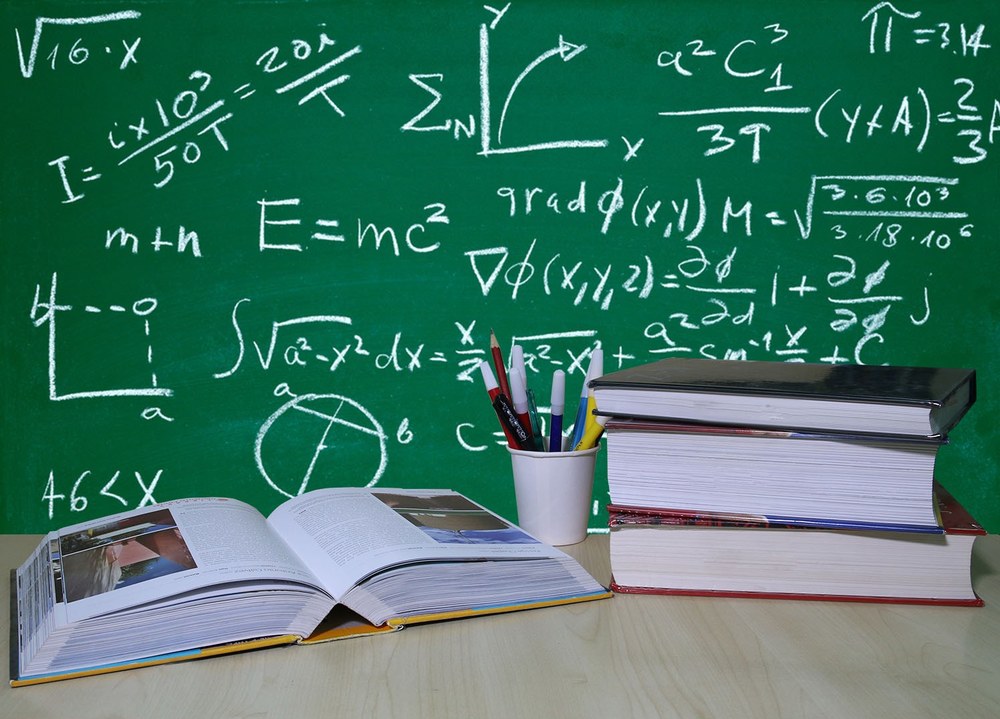 √16·x
I = i×10³/50T = 20i/T
Y
Σ N
X
a²C₁³/3q
π = 3.14
(y+A) = 2/3 A
m+n
E = mc²
grad ϕ(x,y) M = √3·6·10³/3·18·10⁶
∇ϕ(x,y,z) = ∂ϕ/∂d i + ∂ϕ/∂ϕ j
b
a
∫√a²-x² dx = x/2 √a²-x² + a²/2 sin⁻¹ x/2 + C
a
b
c =
46 < X